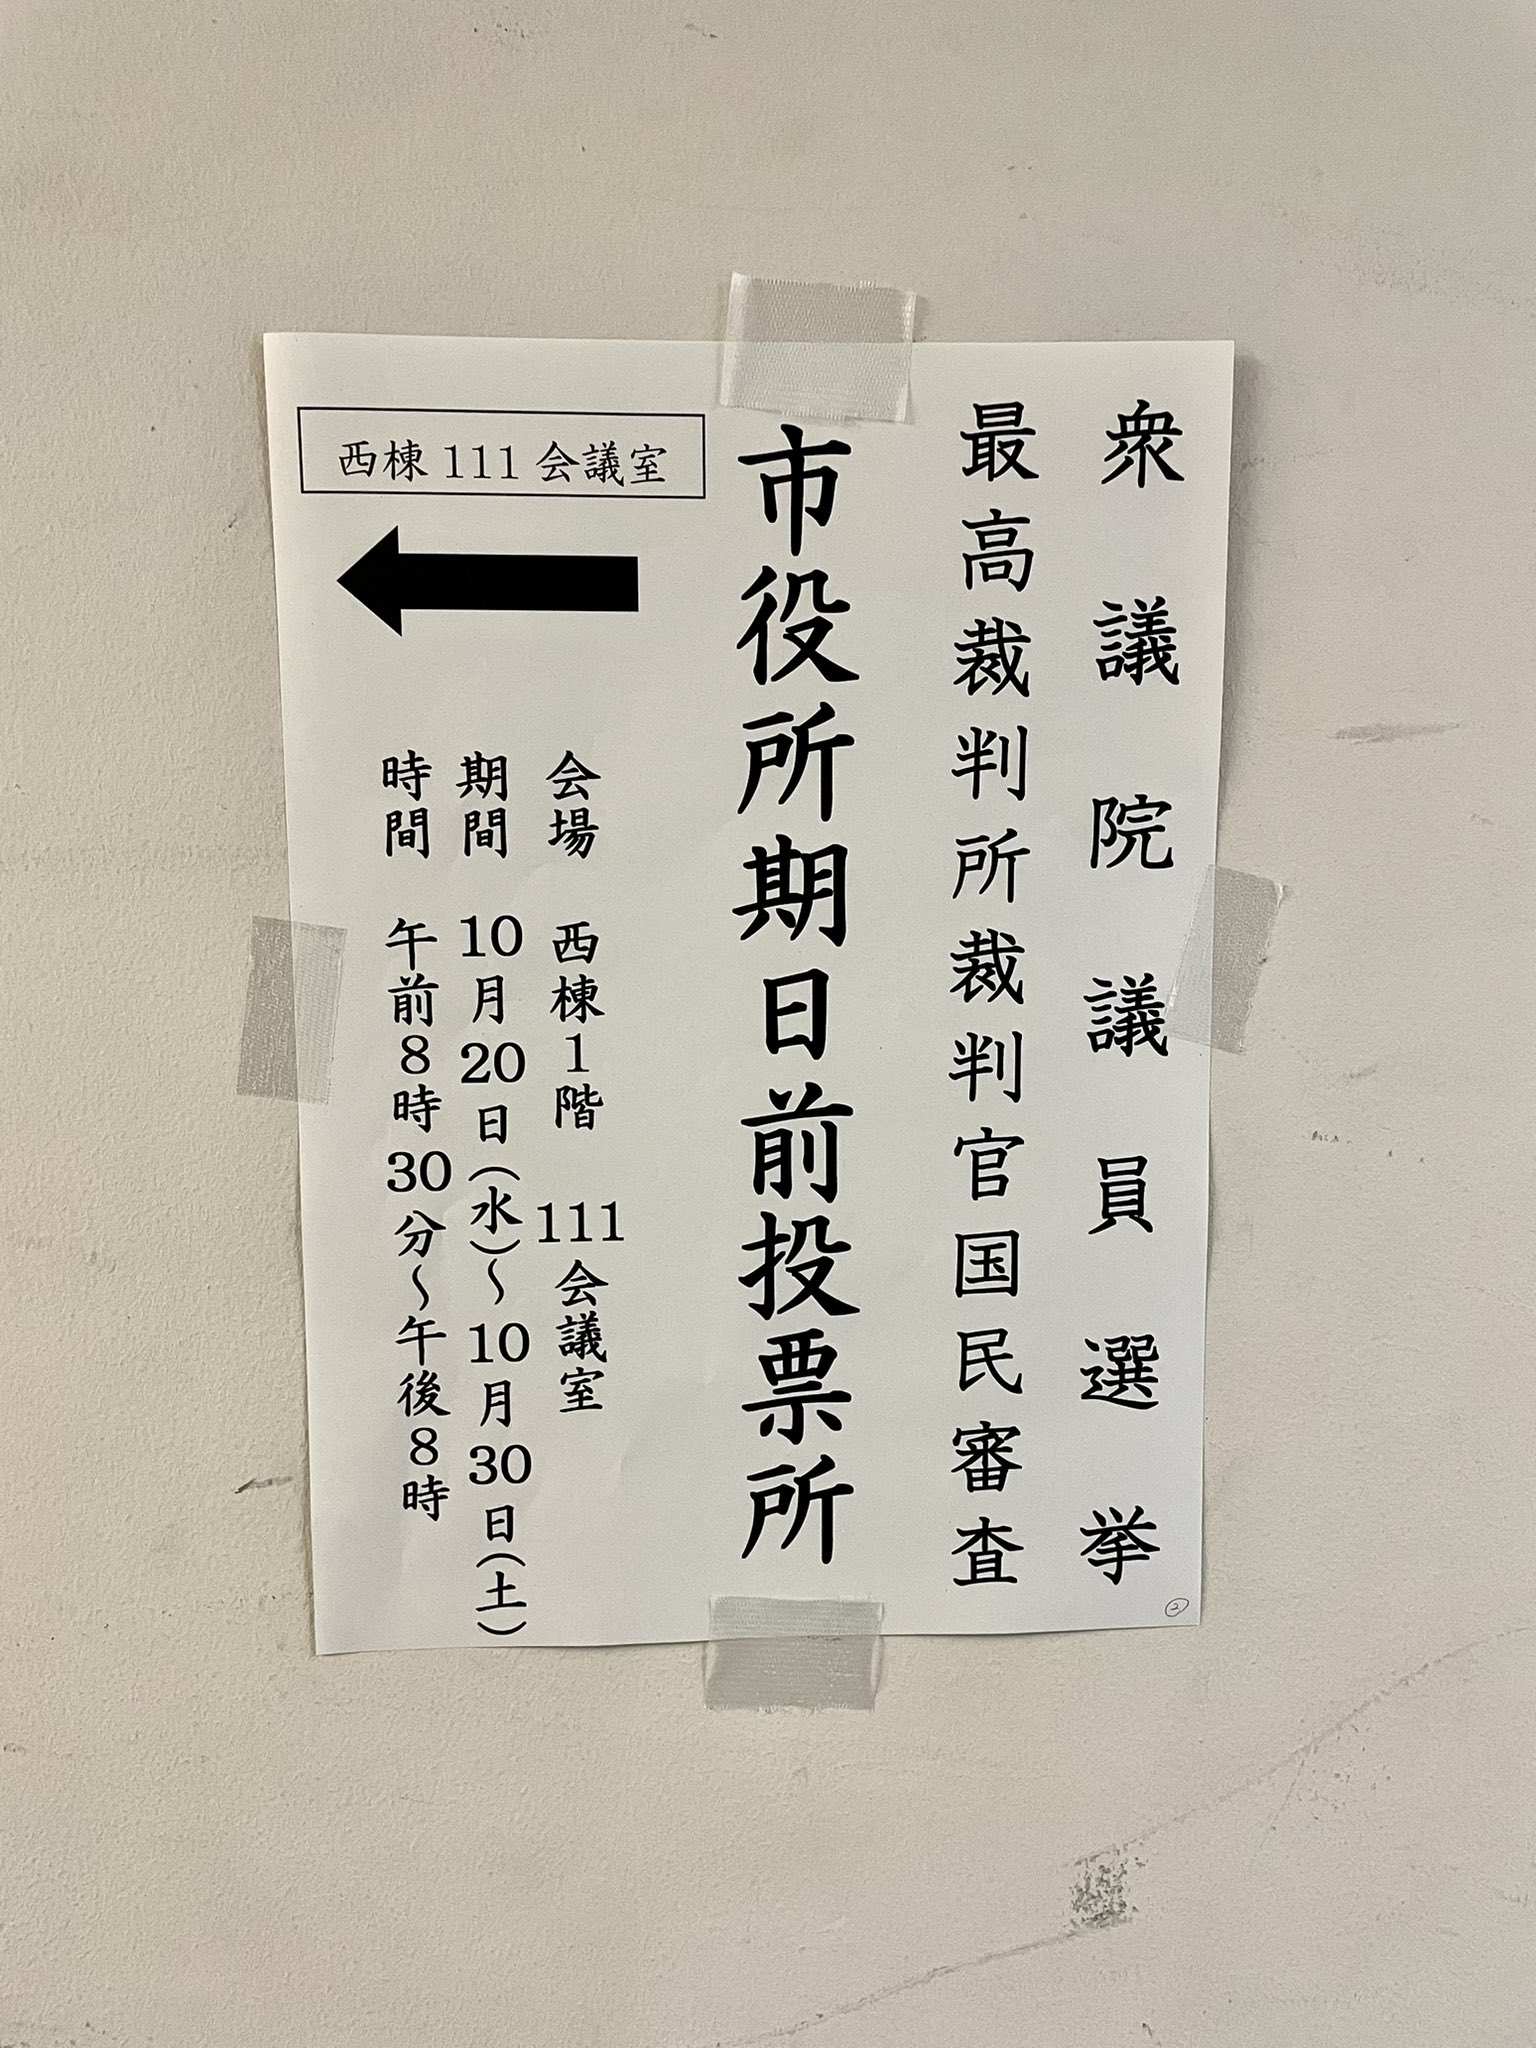 衆議院議員選挙
最高裁判所裁判官国民審査
市役所期日前投票所
西棟111会議室
会場 西棟1階 111会議室
期間 10月20日(水)～10月30日(土)
時間 午前8時30分～午後8時
②